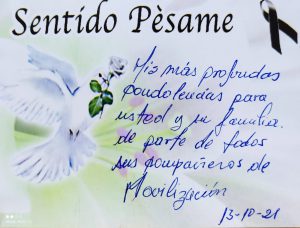 Sentido Pèsame
Mis más profundas
condolencias para
usted y su familia.
de parte de todos
sus compañeros de
Movilización
13-10-21